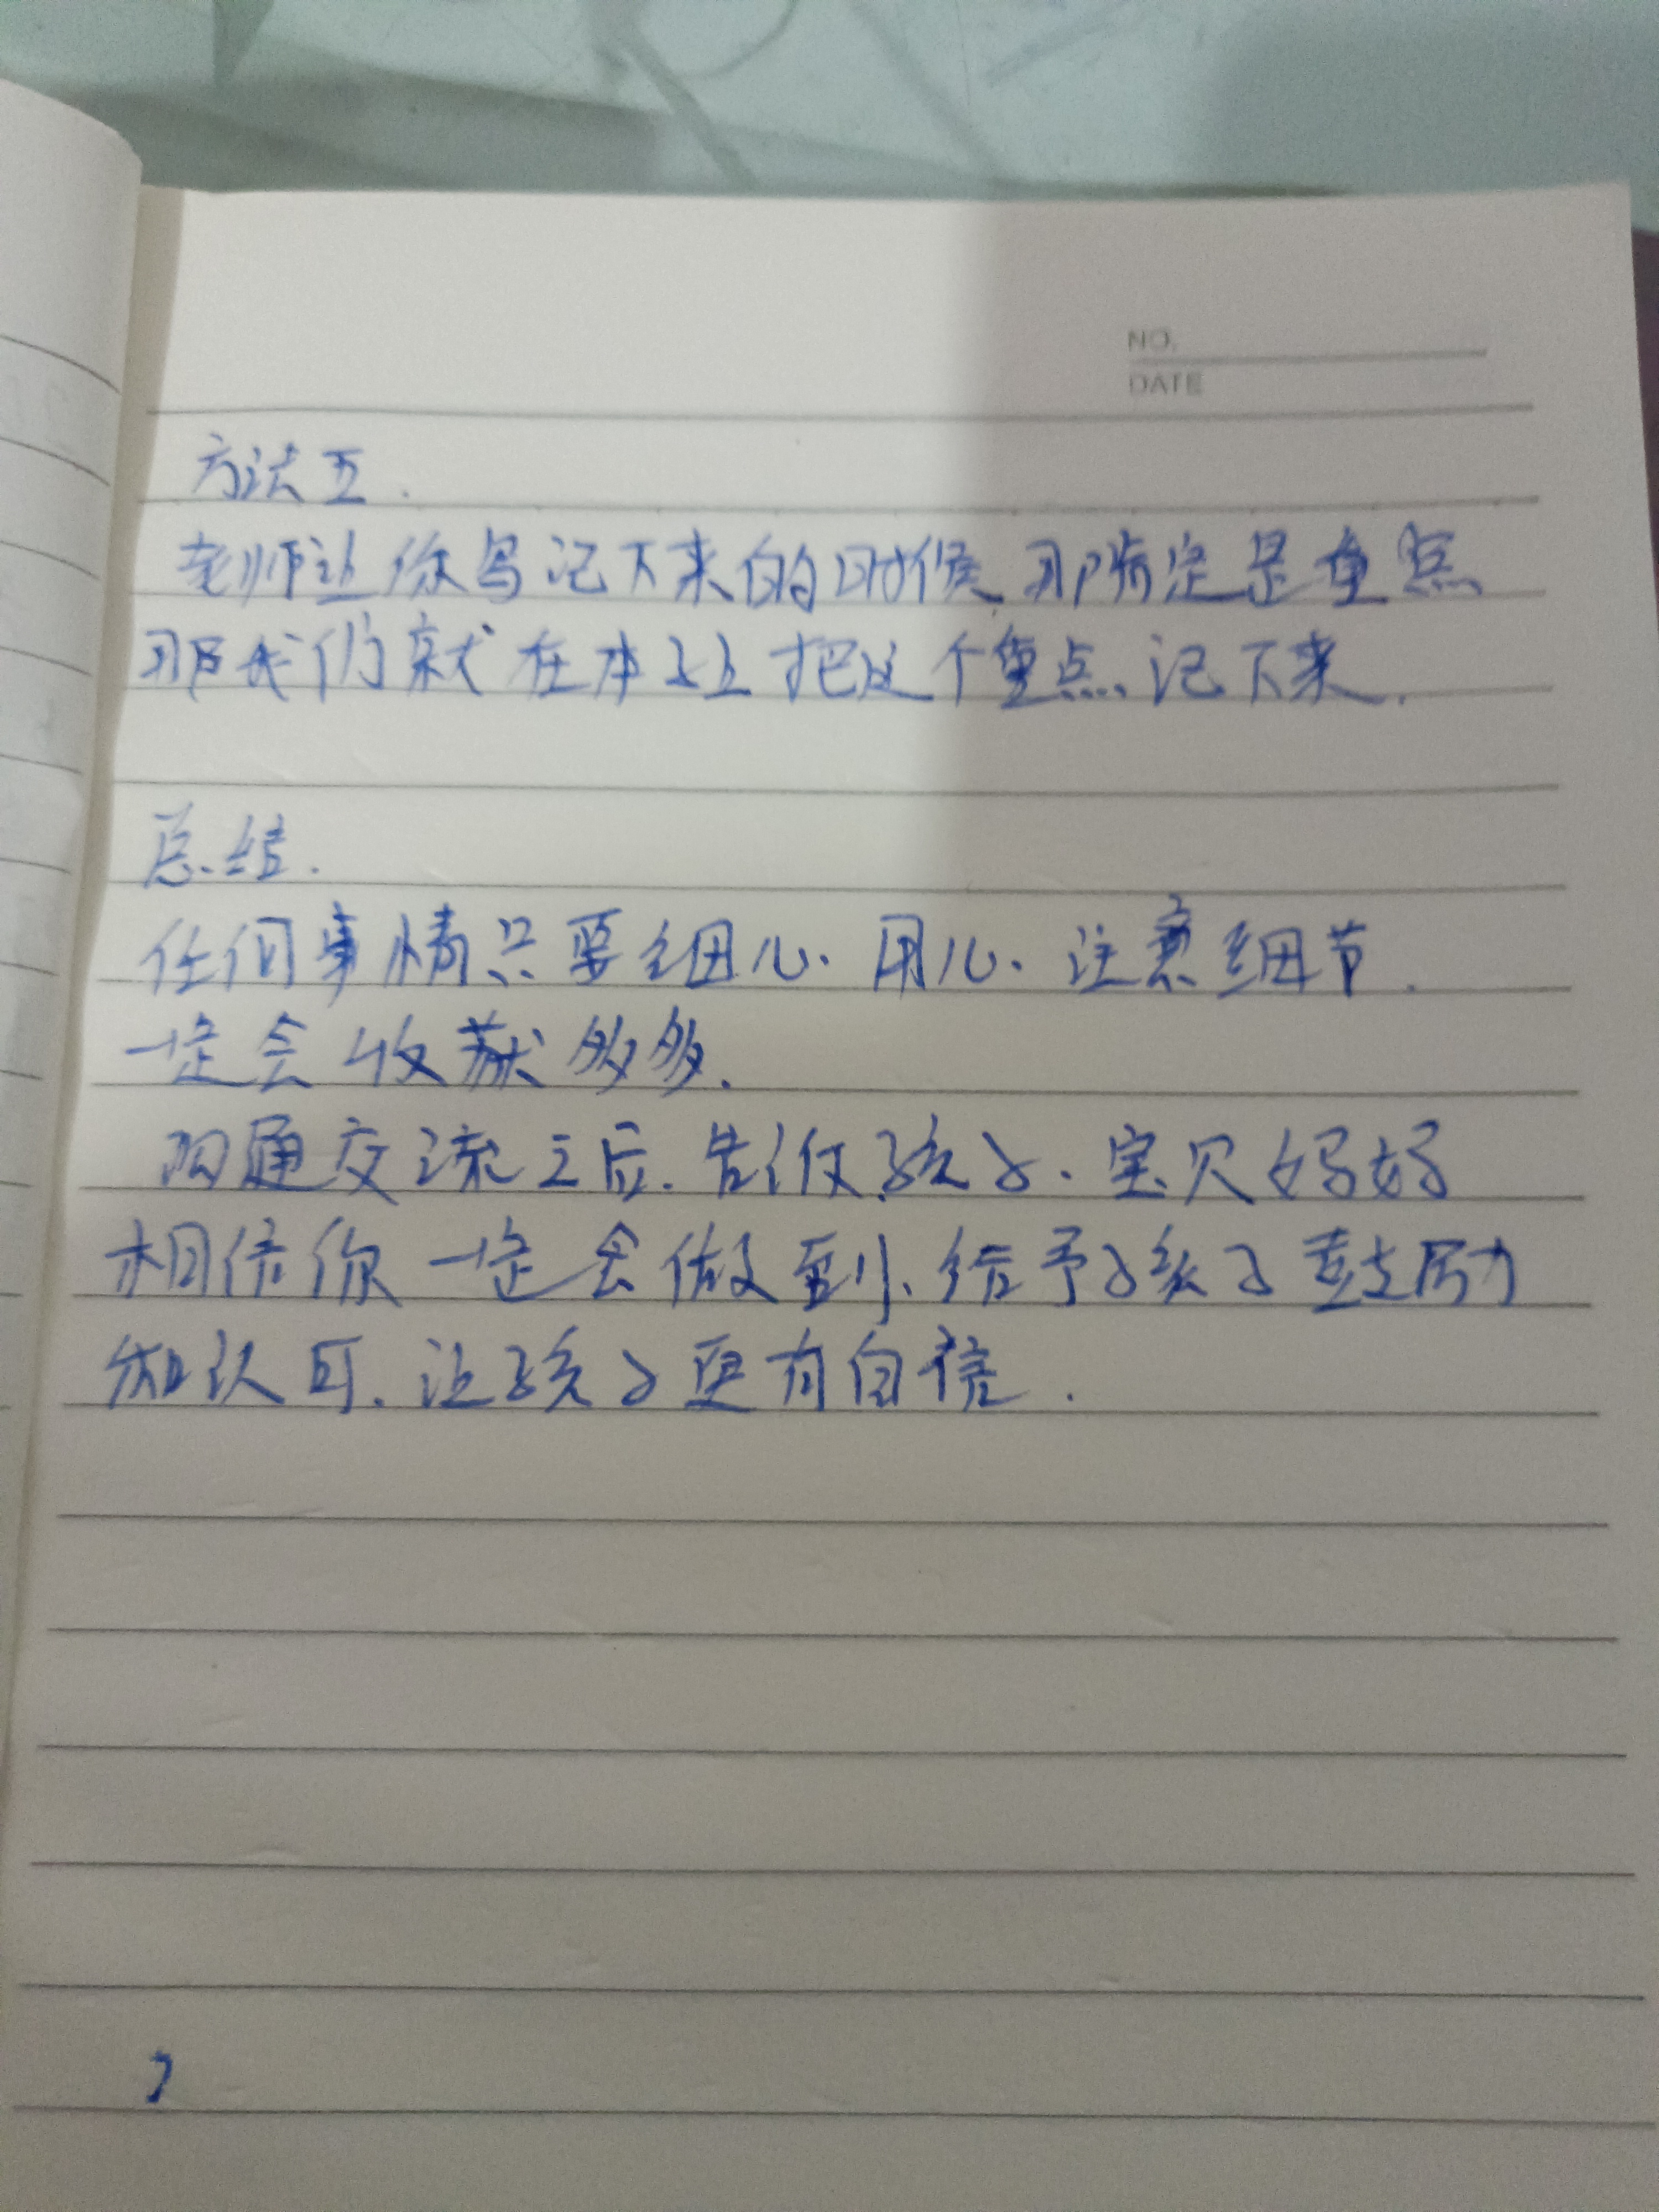 NO.
DATE
方法五.
老师让你写记下来的时候 那肯定是重点
那我们就在本子上把这个重点记下来.
总结.
任何事情只要细心、用心、注意细节.
一定会收获多多.
沟通交流之后.告诉孩子、宝贝妈妈
相信你一定会做到、给予孩子鼓励
和认可.让孩子更有自信.